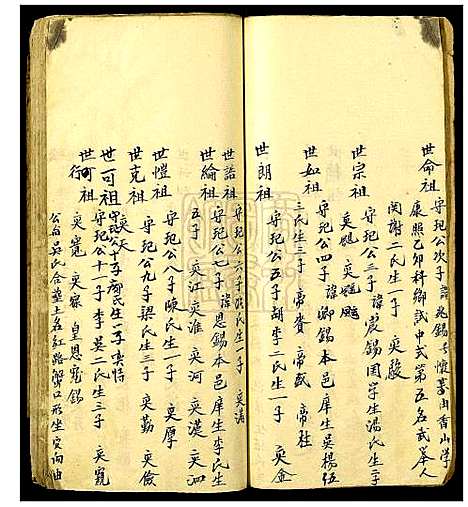 世命祖
守玘公次子諱兆錫号懷萬由香山学
康熙乙卯科鄉試中式第五名武舉人
関謝二氏生一子 奕駿
世宗祖
守玘公三子諱宸錫国学生湯氏生二子
奕颺 奕飈
世如祖
守玘公四子諱卿錫本邑庠生吴楊伍
三氏生三子 帝賚 帝威 帝柱
世朗祖
守玘公五子胡李二氏生一子 奕金
世諾祖
守玘公六子 氏生一子 奕滿
世綸祖
守玘公七子諱恩錫本邑庠生李氏生
五子 奕江 奕淮 奕河 奕漢 奕泗
世愷祖
守玘公八子陳氏生一子 奕厚
世克祖
守玘公九子梁氏生三子 奕勤 奕儉
奕天
世可祖
守玘公十子鄺氏生一子奕恃
世可祖
守玘公十一子李吴二氏生三子 奕寬
行
奕寬 奕寀 皇恩寵錫
公白吴氏合墓土名紅路蟹口形坐 向由